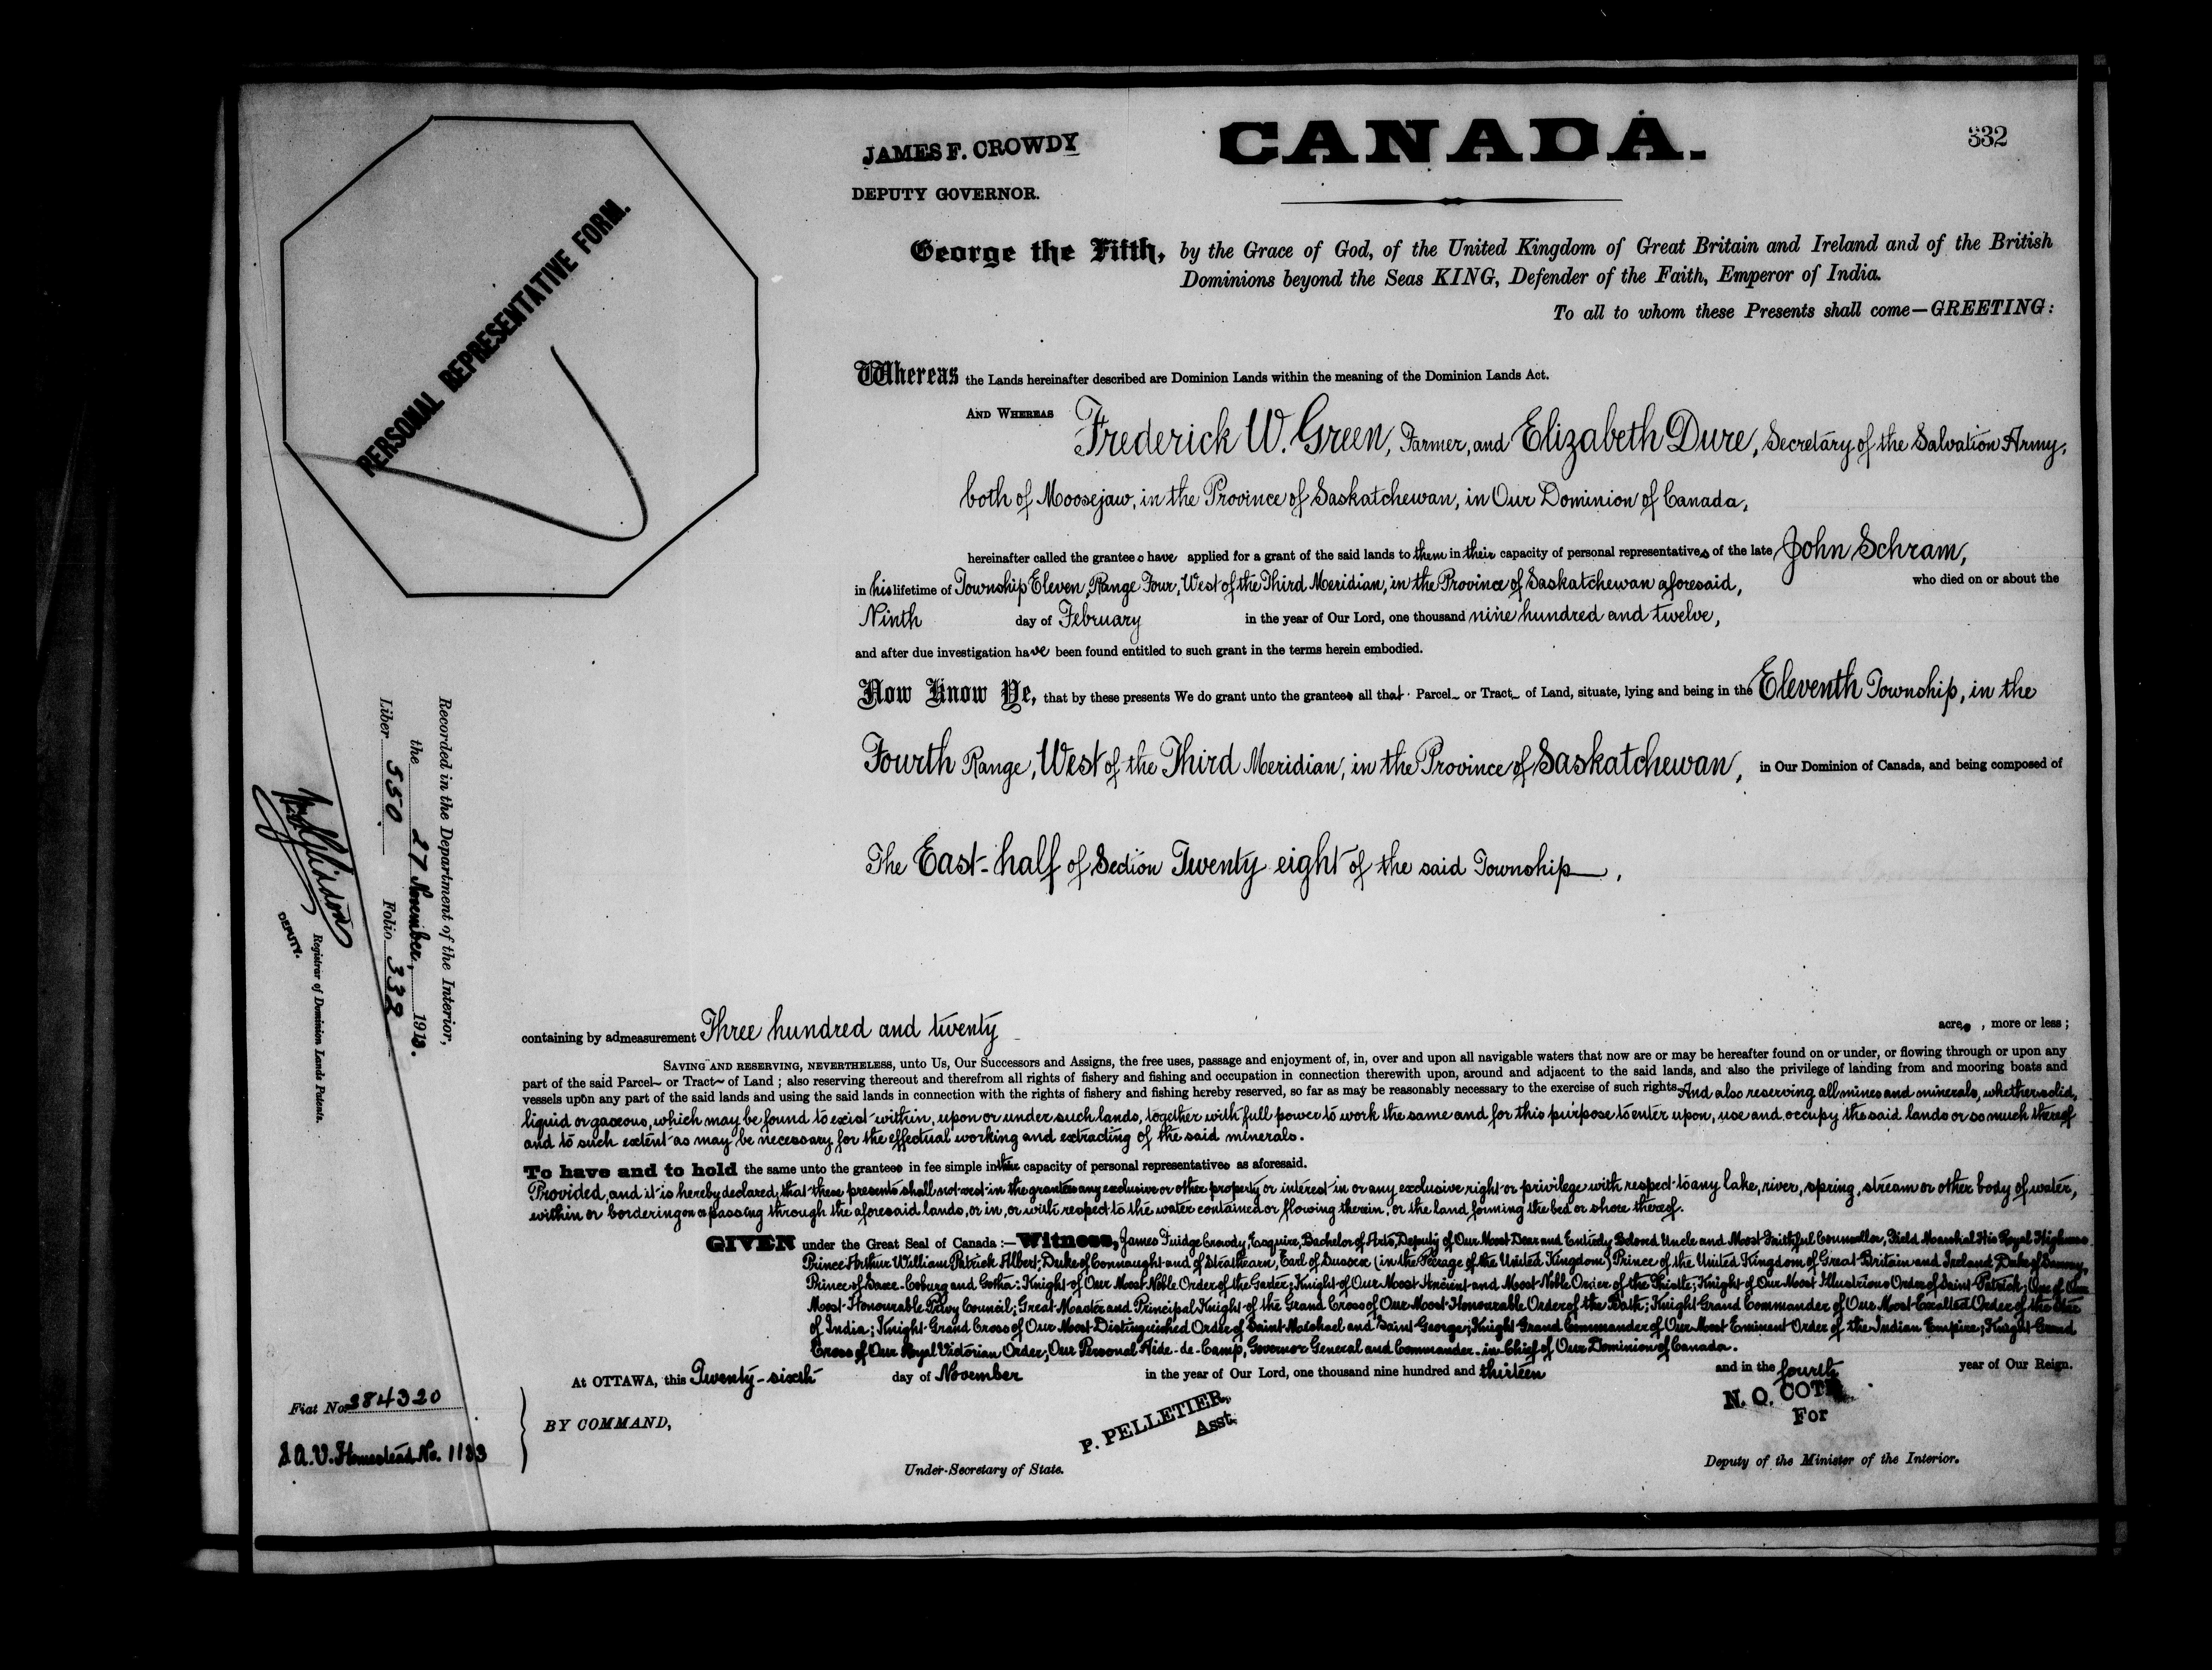 332
JAMES F. CROWDY
DEPUTY GOVERNOR.
CANADA.
PERSONAL REPRESENTATIVE FORM.
George the Fifth, by the Grace of God, of the United Kingdom of Great Britain and Ireland and of the British
Dominions beyond the Seas KING, Defender of the Faith, Emperor of India.
To all to whom these Presents shall come—GREETING:
Whereas the Lands hereinafter described are Dominion Lands within the meaning of the Dominion Lands Act.
AND WHEREAS Frederick W. Green, Farmer, and Elizabeth Dure, Secretary of the Salvation Army,
both of Moosejaw, in the Province of Saskatchewan, in Our Dominion of Canada,
hereinafter called the grantees have applied for a grant of the said lands to them in their capacity of personal representatives of the late John Schram,
in his lifetime of Township Eleven, Range Four, West of the Third Meridian, in the Province of Saskatchewan aforesaid, who died on or about the
Ninth day of February in the year of Our Lord, one thousand nine hundred and twelve,
and after due investigation have been found entitled to such grant in the terms herein embodied.
Now Know Ye, that by these presents We do grant unto the grantees all that Parcel or Tract of Land, situate, lying and being in the Eleventh Township, in the
Fourth Range, West of the Third Meridian, in the Province of Saskatchewan, in Our Dominion of Canada, and being composed of
The East-half of Section Twenty eight of the said Township,
containing by admeasurement Three hundred and twenty acres, more or less;
SAVING AND RESERVING, NEVERTHELESS, unto Us, Our Successors and Assigns, the free uses, passage and enjoyment of, in, over and upon all navigable waters that now are or may be hereafter found on or under, or flowing through or upon any
part of the said Parcel or Tract of Land; also reserving thereout and therefrom all rights of fishery and fishing and occupation in connection therewith upon, around and adjacent to the said lands, and also the privilege of landing from and mooring boats and
vessels upon any part of the said lands and using the said lands in connection with the rights of fishery and fishing hereby reserved, so far as may be reasonably necessary to the exercise of such rights. And also reserving all mines and minerals, whether solid,
liquid or gaseous, which may be found to exist within, upon or under such lands, together with full power to work the same and for this purpose to enter upon, use and occupy the said lands or so much thereof
and to such extent as may be necessary for the effectual working and extracting of the said minerals.
To have and to hold the same unto the grantees in fee simple in their capacity of personal representatives as aforesaid.
Provided, and it is hereby declared, that these presents shall not vest in the grantees any exclusive or other property or interest in or any exclusive right or privilege with respect to any lake, river, spring, stream or other body of water,
within or bordering on or passing through the aforesaid lands, or in, or with respect to the water contained or flowing therein, or the land forming the bed or shore thereof.
GIVEN under the Great Seal of Canada:—Witness, James Fuidge Crowdy, Esquire, Bachelor of Arts, Deputy of Our Most Dear and Entirely Beloved Uncle and Most Faithful Counsellor, Field Marshal His Royal Highness
Prince Arthur William Patrick Albert, Duke of Connaught and of Strathearn, Earl of Sussex (in the Peerage of the United Kingdom) Prince of the United Kingdom of Great Britain and Ireland, Duke of Saxony,
Prince of Saxe-Coburg and Gotha: Knight of Our Most Noble Order of the Garter; Knight of Our Most Ancient and Most Noble Order of the Thistle; Knight of Our Most Illustrious Order of Saint Patrick; One of Our
Most Honourable Privy Council; Great Master and Principal Knight of the Grand Cross of Our Most Honourable Order of the Bath; Knight Grand Commander of Our Most Exalted Order of the Star
of India; Knight Grand Cross of Our Most Distinguished Order of Saint Michael and Saint George; Knight Grand Commander of Our Most Eminent Order of the Indian Empire; Knight Grand
Cross of Our Royal Victorian Order; Our Personal Aide-de-Camp, Governor General and Commander-in-Chief of Our Dominion of Canada.
At OTTAWA, this Twenty-sixth day of November in the year of Our Lord, one thousand nine hundred and thirteen and in the fourth year of Our Reign.
BY COMMAND,
P. PELLETIER,
Asst.
Under-Secretary of State.
N. O. COTE
For
Deputy of the Minister of the Interior.
Recorded in the Department of the Interior,
the 27 November, 1913.
Liber 550 Folio 332
Registrar of Dominion Lands Patents.
DEPUTY.
Fiat No. 284320
S.A.V. Homestead No. 1183